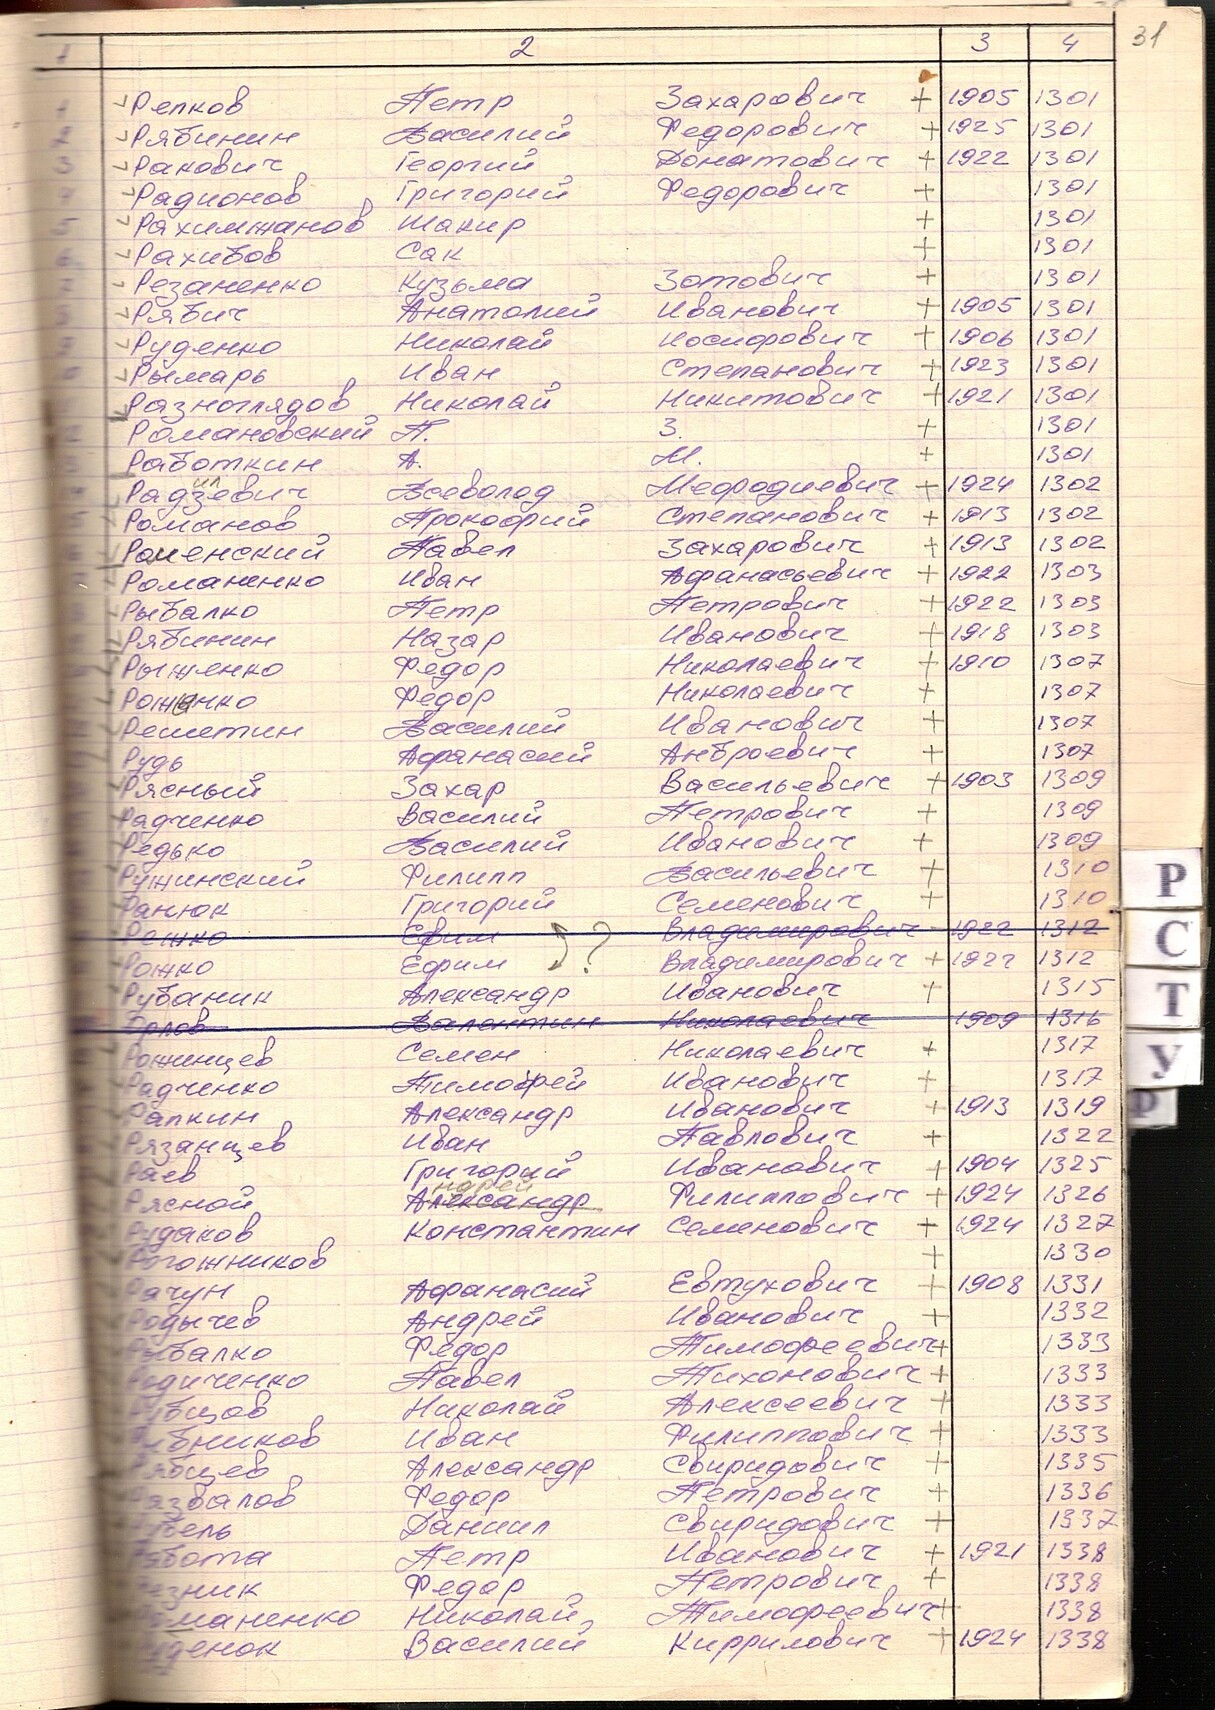 31
1 2 3 4
Репков Петр Захарович + 1905 1301
Рябинин Василий Федорович + 1925 1301
Ракович Георгий Донатович + 1922 1301
Радионов Григорий Федорович + 1301
Рахимжанов Шакир + 1301
Рахибов Сак + 1301
Резаненко Кузьма Зотович + 1301
Рябич Анатолий Иванович + 1905 1301
Руденко Николай Иосифович + 1906 1301
Рымарь Иван Степанович + 1923 1301
Разноглядов Николай Никитович + 1921 1301
Романовский П. З. + 1301
Работкин А. М. + 1301
ил
Радзевич Всеволод Мефодиевич + 1924 1302
Романов Прокофий Степанович + 1913 1302
Роменский Павел Захарович + 1913 1302
Романенко Иван Афанасьевич + 1922 1303
Рыбалко Петр Петрович + 1922 1303
Рябинин Назар Иванович + 1918 1303
Рыженко Федор Николаевич + 1910 1307
Роженко Федор Николаевич + 1307
Решетин Василий Иванович + 1307
Рудь Афанасий Анброевич + 1307
Рясный Захар Васильевич + 1903 1309
Радченко Василий Петрович + 1309
Редько Василий Иванович + 1309
Ружинский Филипп Васильевич + 1310
Ранюк Григорий Семенович + 1310
Решко Ефим Владимирович 1922 1312
Рожко Ефим ? Владимирович + 1922 1312
Рубаник Александр Иванович + 1315
Орлов Валентин Николаевич 1909 1316
Рожинцев Семен Николаевич + 1317
Радченко Тимофей Иванович + 1317
Рапкин Александр Иванович + 1913 1319
Рязанцев Иван Павлович + 1322
Раев Григорий Иванович + 1904 1325
ндрей
Рясной Александр Филиппович + 1924 1326
Рудаков Константин Семенович + 1924 1327
Рогожников + 1330
Рачун Афанасий Евтухович + 1908 1331
Родычев Андрей Иванович + 1332
Рыбалко Федор Тимофеевич + 1333
Родиченко Павел Тихонович + 1333
Рубцов Николай Алексеевич + 1333
Рыбников Иван Филиппович + 1333
Рябцев Александр Свиридович + 1335
Развалов Федор Петрович + 1336
Рубель Даниил Свиридович + 1337
Рябота Петр Иванович + 1921 1338
Резник Федор Петрович + 1338
Романенко Николай Тимофеевич + 1338
Руденок Василий Киррилович + 1924 1338
Р
С
Т
У
Ф